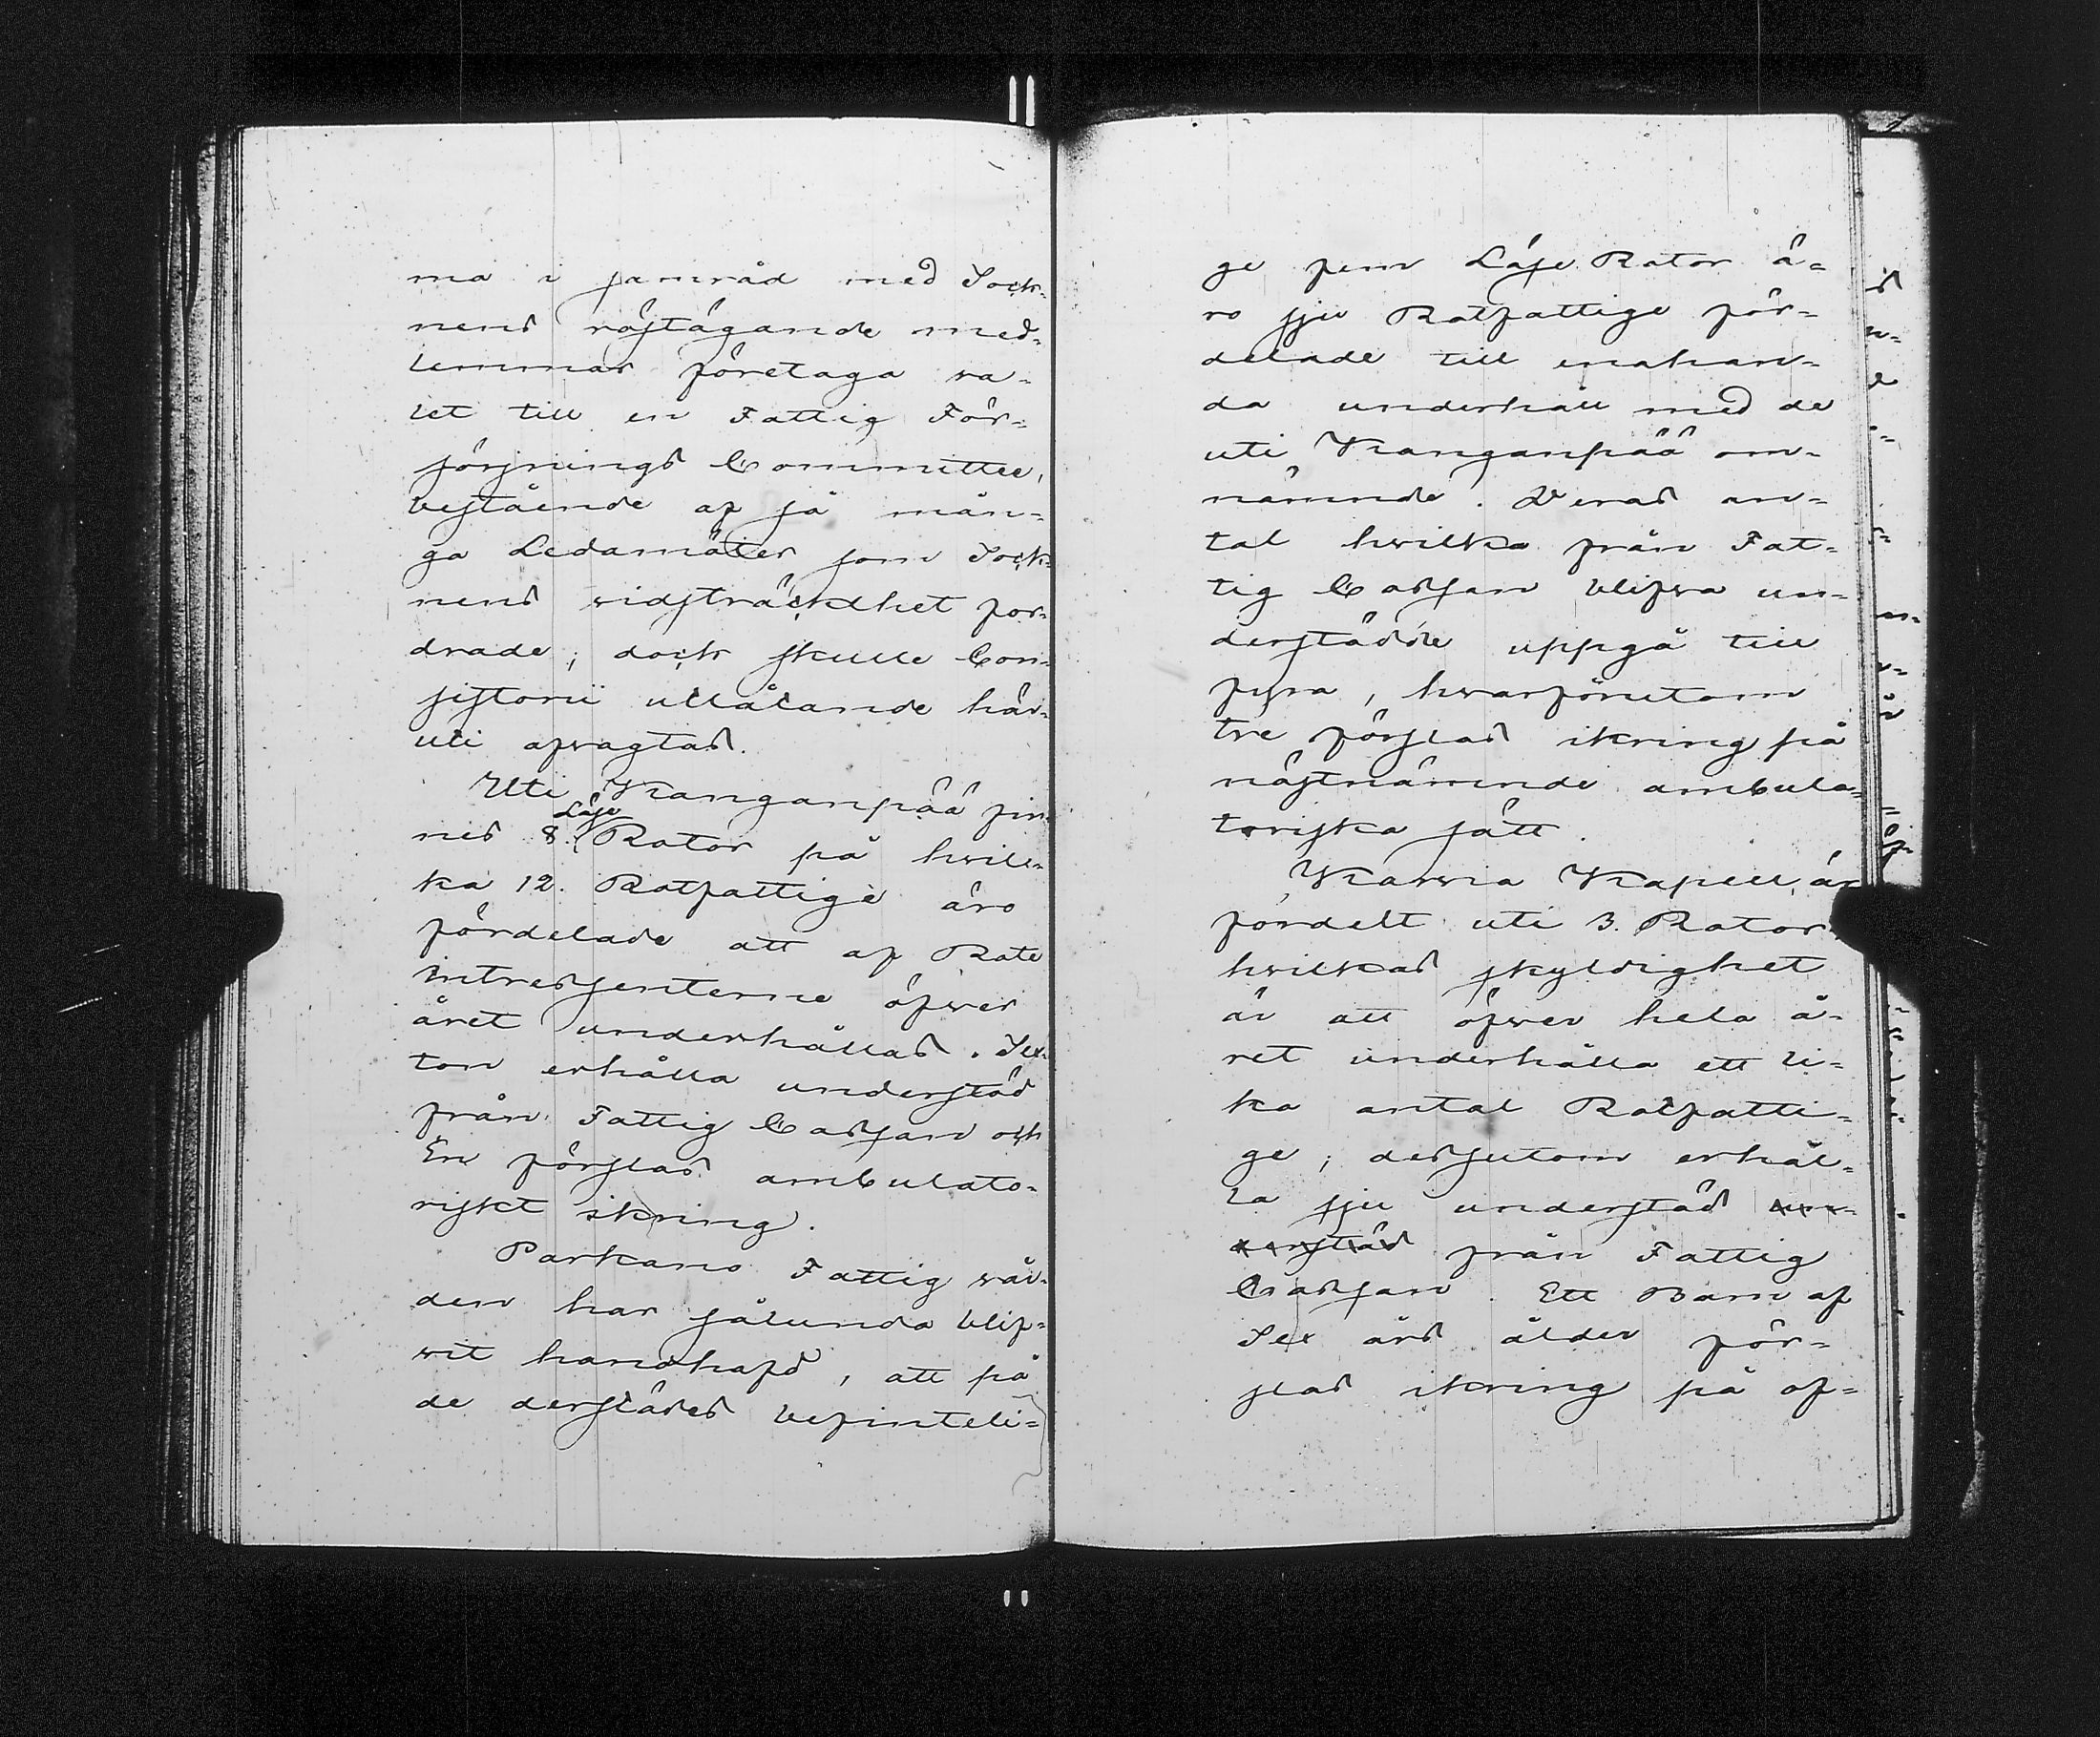 ma i samråd med Sock-
nens röstägande med-
lemmar företaga wa-
let till en Fattig För-
sörjnings Committee,
bestående af så mån-
ga Ledamöter som Sock-
nens widsträckthet for-
drade; dock skulle Con-
sistorii utlåtande här-
uti afvagtas.
Uti Kanganpää fin-
nes 8. Läse Rotor på hwil-
ka 12. Rotfattige äro
fördelade att af Rote
intressenterne öfwer
året underhållas. Sex-
ton erhålla understöd
från Fattig Cassan och
En förslas ambulato-
riskt ikring.
Parkano Fattig wår-
den har sålunda blif-
wit handhafd, att på
de derstädes befinteli-
ge fem Läse Rotor ä-
ro sju Rotfattige för-
delade till enahan-
da underhåll med de
uti Kanganpää om-
nämnde. Deras an-
tal hwilka från Fat-
tig Cassan blifwa un-
derstödde uppgå till
fyra, hwarförutom
tre förslas ikring på
nästnämnde ambula-
toriska sätt.
Karvia Kapell är
fördelt uti 3. Rotor
hwilkas skyldighet
är att öfwer hela å-
ret underhålla ett li-
ka antal Rotfatti-
ge; dessutom erhål-
la sju understöd un-
derstöd från Fattig
Cassan. Ett Barn af
Sex års ålder för-
slas ikring på of-